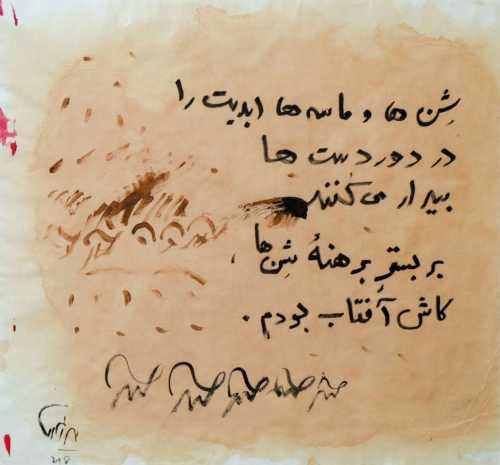 شِن ها و ماسه ها ابدیت را
در دوردست ها
بیدار می کنند
بر بسترِ برهنهٔ شِن ها
کاش آفتاب بودم.